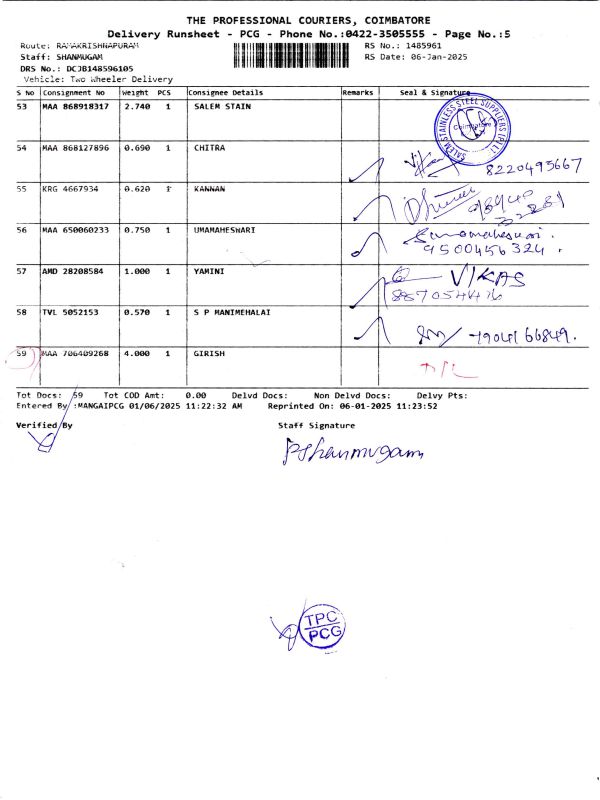 THE PROFESSIONAL COURIERS, COIMBATORE
Delivery Runsheet - PCG - Phone No.:0422-3505555 - Page No.:5
Route: RAMAKRISHNAPURAM RS No.: 1485961
Staff: SHANMUGAM RS Date: 06-Jan-2025
DRS No.: DCJB148596105
Vehicle: Two Wheeler Delivery
S No Consignment No Weight PCS Consignee Details Remarks Seal & Signature
53 MAA 868918317 2.740 1 SALEM STAIN
SALEM STAINLESS STEEL SUPPLIERS (P) LTD. Coimbatore
54 MAA 868127896 0.690 1 CHITRA 8220493667
55 KRG 4667934 0.620 1 KANNAN
56 MAA 650060233 0.750 1 UMAMAHESWARI
9500456324.
57 AMD 28208584 1.000 1 YAMINI VIKAS
8870544416
58 TVL 5052153 0.570 1 S P MANIMEHALAI
7904166849.
59 MAA 706409268 4.000 1 GIRISH
Tot Docs: 59 Tot COD Amt: 0.00 Delvd Docs: Non Delvd Docs: Delvy Pts:
Entered By :MANGAIPCG 01/06/2025 11:22:32 AM Reprinted On: 06-01-2025 11:23:52
Verified By Staff Signature
P Shanmugam
TPC
PCG